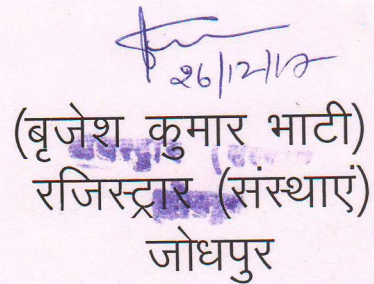 26/12/17
(बृजेश कुमार भाटी)
रजिस्ट्रार (संस्थाएं)
जोधपुर